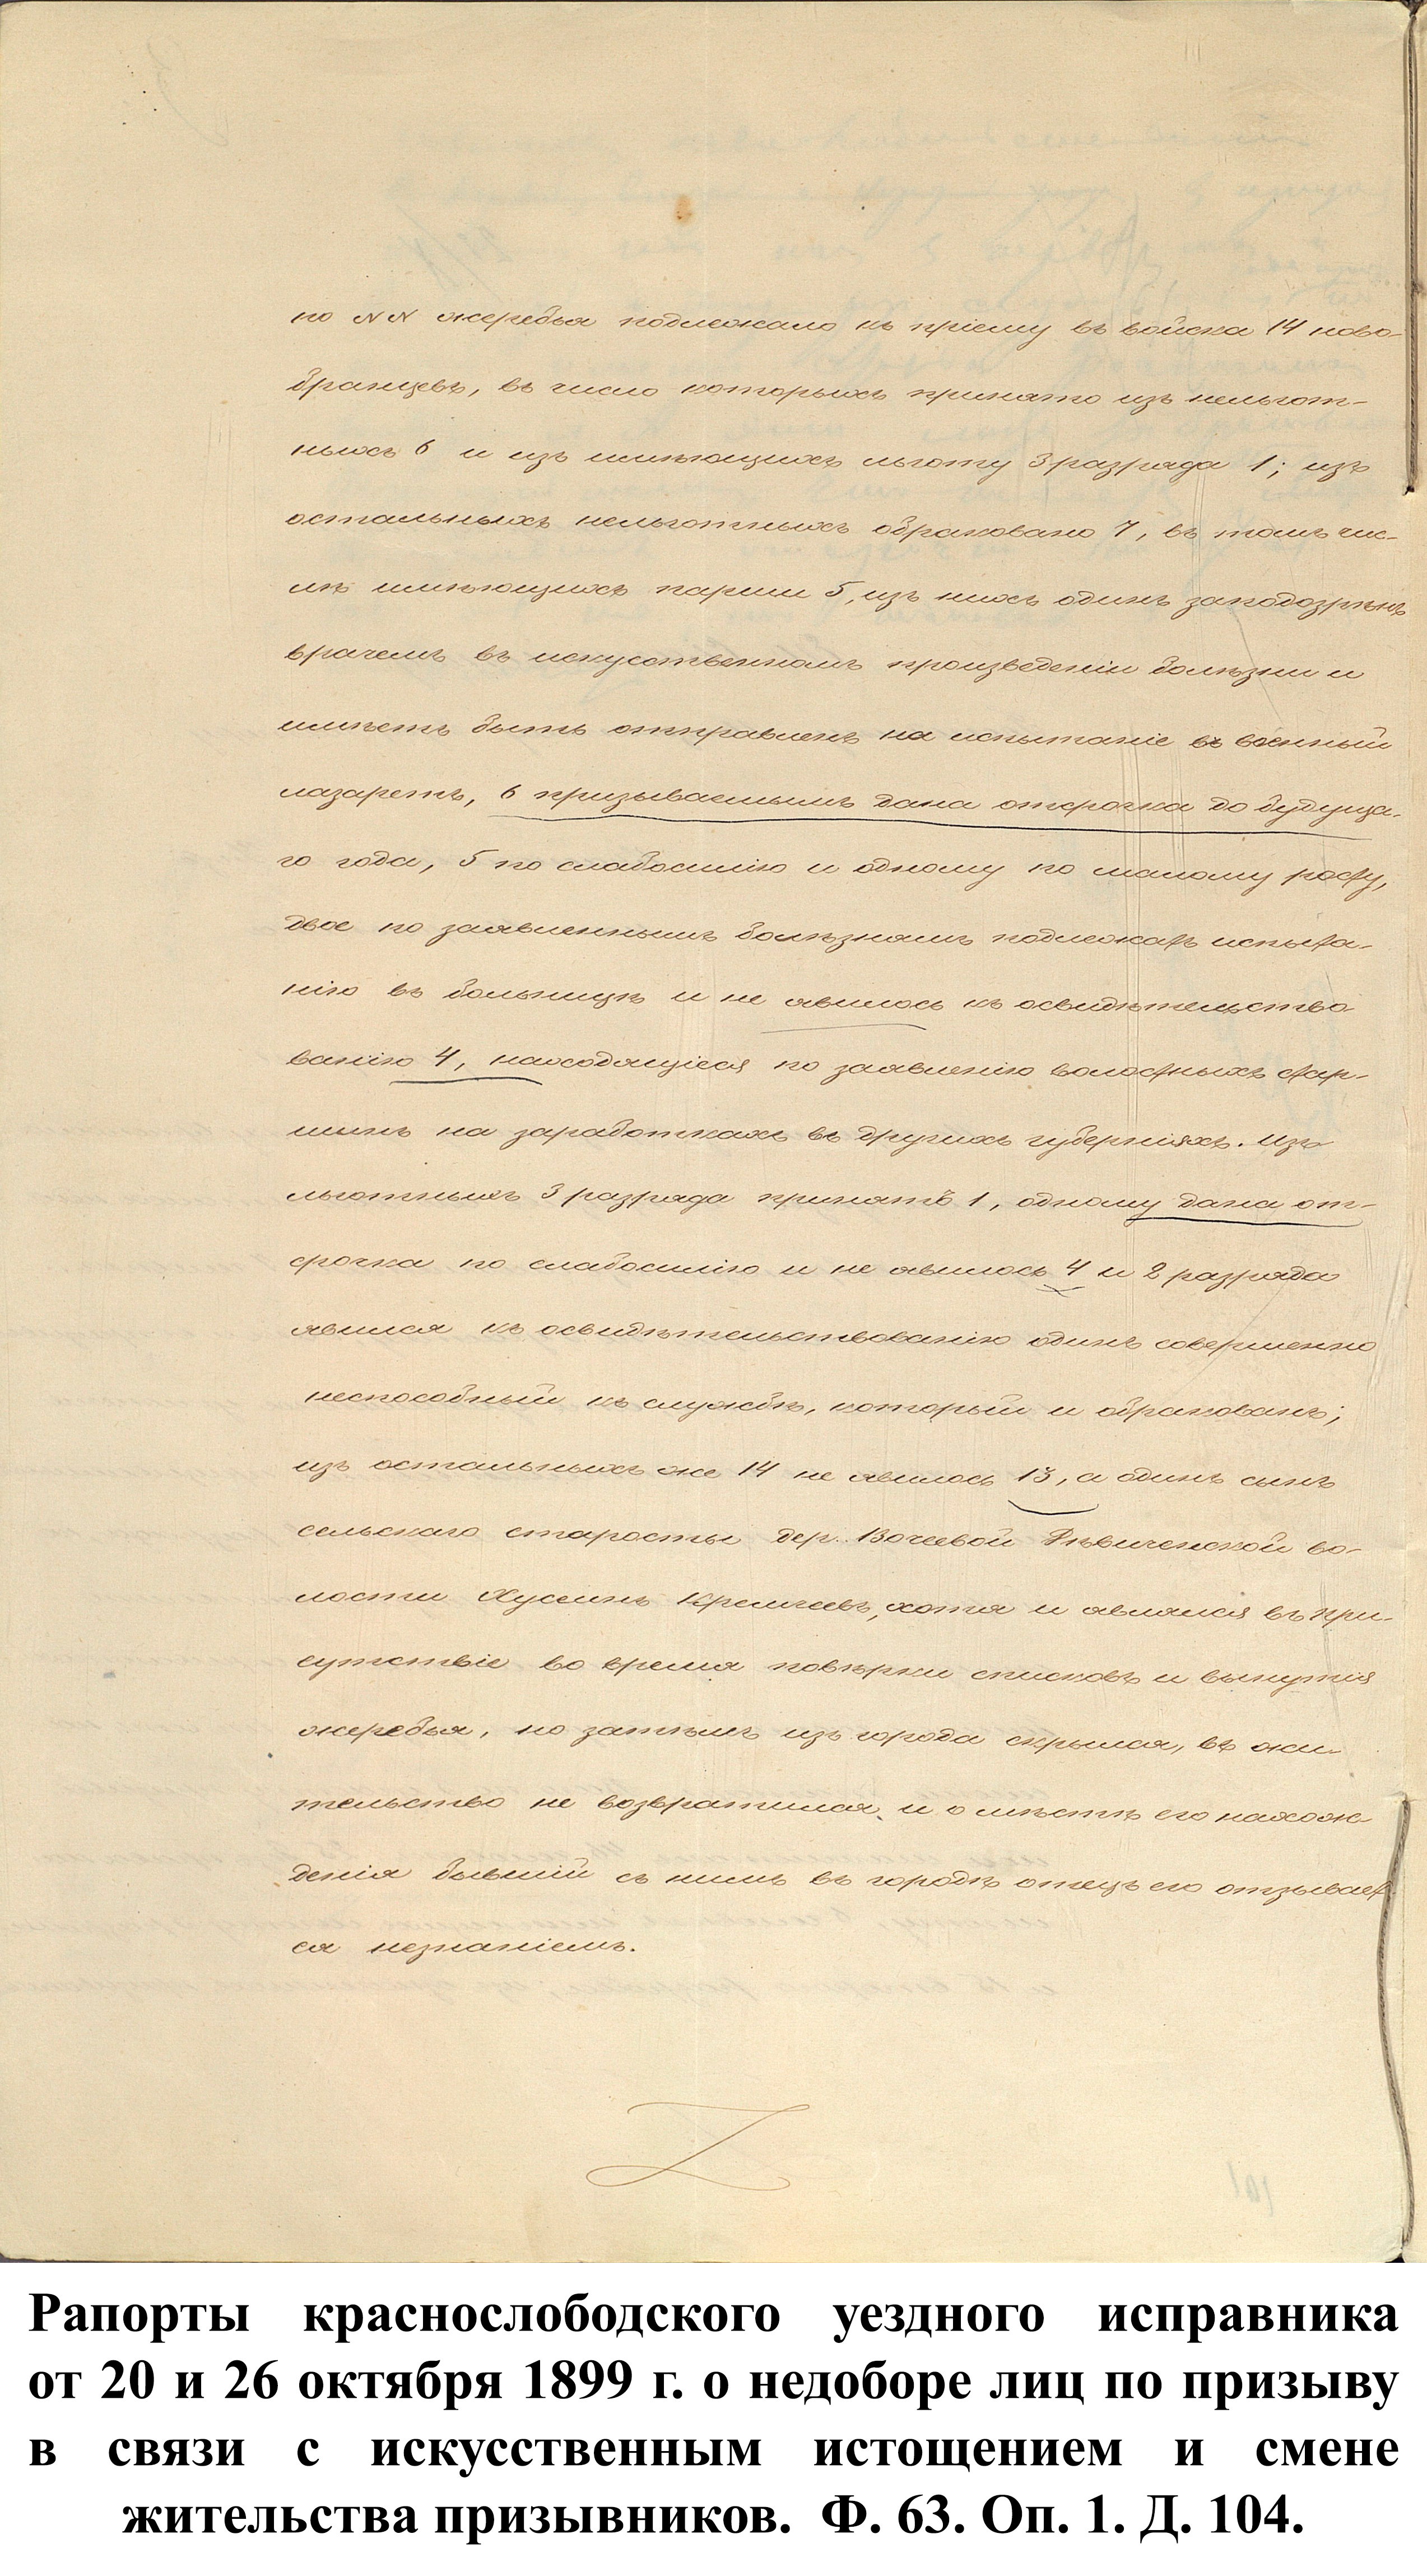 по NN жеребья подлежало къ пріему въ войска 14 ново-
бранцевъ, въ число которыхъ принято изъ нельгот-
ныхъ 6 и изъ имѣющихъ льготу 3 разряда 1; изъ
остальныхъ нельготныхъ обраковано 7, въ томъ чис-
лѣ имѣющихъ парши 5, изъ нихъ одинъ заподозрѣнъ
врачемъ въ искусственномъ произведеніи болѣзни и
имѣетъ быть отправленъ на испытаніе въ военный
лазаретъ, 6 призываемымъ дана отсрочка до будуща-
го года, 5 по слабосилію и одному по малому росту,
двое по заявленнымъ болѣзнямъ подлежатъ испыта-
нію въ больницѣ и не явилось къ освидѣтельство-
ванію 4, находящіеся по заявленію волостныхъ стар-
шинъ на заработкахъ въ другихъ губерніяхъ. Изъ
льготныхъ 3 разряда принятъ 1, одному дана от-
срочка по слабосилію и не явилось 4 и 2 разряда
явился къ освидѣтельствованію одинъ совершенно
неспособный къ службѣ, который и обракованъ;
изъ остальныхъ же 14 не явилось 13, а одинъ сынъ
сельскаго старосты дер. Дѣвиченской во-
лости Хусаинъ хотя и являлся въ при-
сутствіе во время повѣрки списковъ и вынутія
жеребья, но затѣмъ изъ города скрылся, въ жи-
тельство не возвратился и о мѣстѣ его нахож-
денія бывшій съ нимъ въ городѣ отецъ его отзывает-
ся незнаніемъ.
Рапорты краснослободского уездного исправника
от 20 и 26 октября 1899 г. о недоборе лиц по призыву
в связи с искусственным истощением и смене
жительства призывников. Ф. 63. Оп. 1. Д. 104.